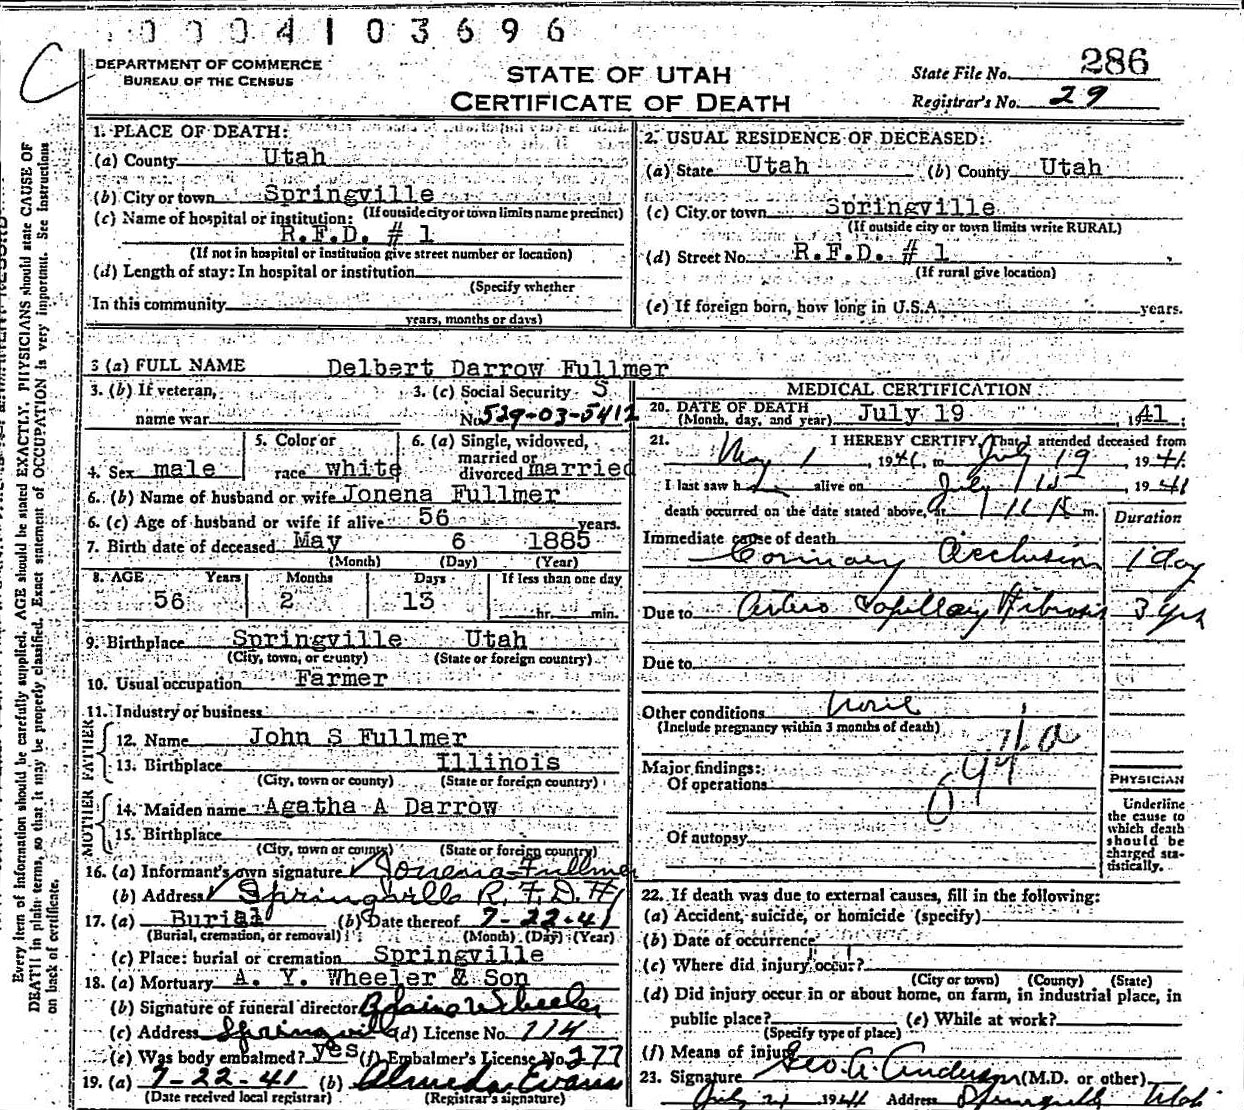 0004103696
C
DEPARTMENT OF COMMERCE
BUREAU OF THE CENSUS
STATE OF UTAH
CERTIFICATE OF DEATH
State File No. 286
Registrar's No. 29
Every item of information should be carefully supplied. AGE should be stated EXACTLY. PHYSICIANS should state CAUSE OF
DEATH in plain terms, so that it may be properly classified. Exact statement of OCCUPATION is very important. See Instructions
on back of certificate.
1. PLACE OF DEATH:
(a) County Utah
(b) City or town Springville
(If outside city or town limits name precinct)
(c) Name of hospital or institution:
R.F.D. # 1
(If not in hospital or institution give street number or location)
(d) Length of stay: In hospital or institution
(Specify whether
In this community
years, months or days)
2. USUAL RESIDENCE OF DECEASED:
(a) State Utah (b) County Utah
(c) City or town Springville
(If outside city or town limits write RURAL)
(d) Street No. R.F.D. # 1
(If rural give location)
(e) If foreign born, how long in U.S.A. years.
3 (a) FULL NAME Delbert Darrow Fullmer
3. (b) If veteran,
name war
3. (c) Social Security S
No. 529-03-5412
4. Sex male
5. Color or
race white
6. (a) Single, widowed,
married or
divorced married
6. (b) Name of husband or wife Jonena Fullmer
6. (c) Age of husband or wife if alive 56 years.
7. Birth date of deceased May 6 1885
(Month) (Day) (Year)
8. AGE Years Months Days If less than one day
56 2 13 hr. min.
9. Birthplace Springville Utah
(City, town, or county) (State or foreign country)
10. Usual occupation Farmer
11. Industry or business
FATHER
12. Name John S Fullmer
13. Birthplace Illinois
(City, town or county) (State or foreign country)
MOTHER
14. Maiden name Agatha A Darrow
15. Birthplace
(City, town or county) (State or foreign country)
16. (a) Informant's own signature Jonena Fullmer
(b) Address Springville R.F.D. #1
17. (a) Burial (b) Date thereof 7-22-41
(Burial, cremation, or removal) (Month) (Day) (Year)
(c) Place: burial or cremation Springville
18. (a) Mortuary A. Y. Wheeler & Son
(b) Signature of funeral director Blaine Wheeler
(c) Address Springville (d) License No. 114
(e) Was body embalmed? yes (f) Embalmer's License No. 277
19. (a) 7-22-41 (b) Almeda Evans
(Date received local registrar) (Registrar's signature)
MEDICAL CERTIFICATION
20. DATE OF DEATH
(Month, day, and year) July 19, 1941
21. I HEREBY CERTIFY, That I attended deceased from
May 1, 1941, to July 19, 1941
I last saw h alive on July 18, 1941
death occurred on the date stated above, at m.
Duration
Immediate cause of death
Coronary Occlusion 1 day
Due to Arterio Capillary Fibrosis 3 yrs
Due to
Other conditions None
(Include pregnancy within 3 months of death)
94a
Major findings:
Of operations
Of autopsy
PHYSICIAN
Underline
the cause to
which death
should be
charged sta-
tistically.
22. If death was due to external causes, fill in the following:
(a) Accident, suicide, or homicide (specify)
(b) Date of occurrence
(c) Where did injury occur?
(City or town) (County) (State)
(d) Did injury occur in or about home, on farm, in industrial place, in
public place? (e) While at work?
(Specify type of place)
(f) Means of injury
23. Signature Geo. A. Anderson (M.D. or other)
July 21 1941 Address Springville Utah